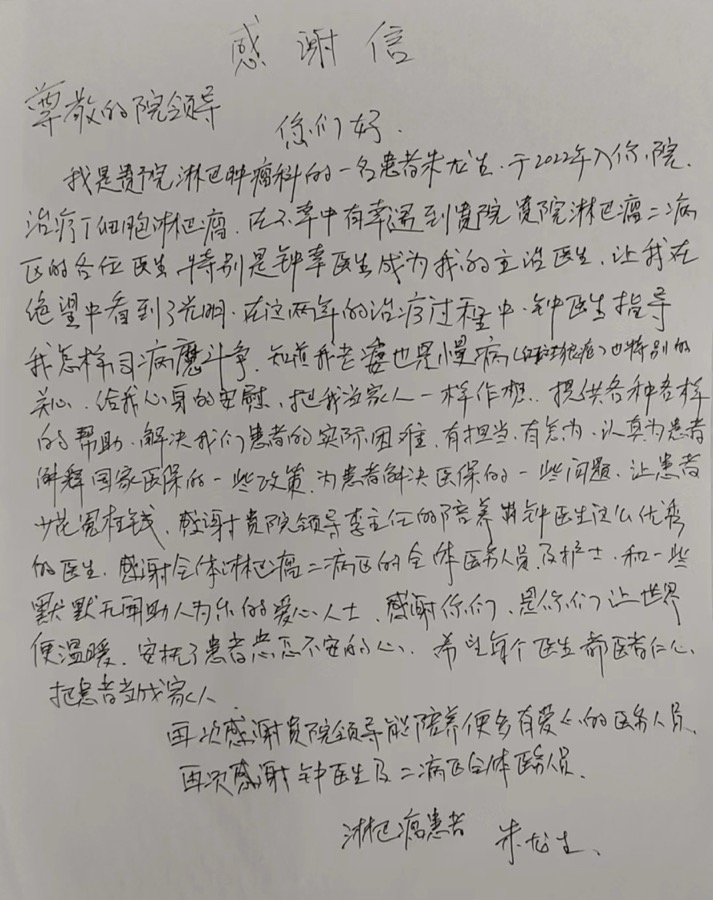 感谢信
尊敬的院领导
您们好.
我是贵院淋巴肿瘤科的一名患者朱龙生.于2022年入你院.
治疗T细胞淋巴瘤.在不幸中有幸遇到贵院贵院淋巴瘤二病
区的各位医生.特别是钟幸医生成为我的主治医生.让我在
绝望中看到了光明.在这两年的治疗过程中.钟医生指导
我怎样同病魔斗争.知道我老婆也是慢病(红斑狼疮)也特别的
关心.给我心身的安慰.把我当家人一样作想..提供各种各样
的帮助.解决我们患者的实际困难.有担当.有怎为.认真为患者
解释国家医保的一些政策.为患者解决医保的一些问题.让患者
少花冤枉钱.感谢贵院领导李主任的培养出钟医生这么优秀
的医生.感谢全体淋巴瘤二病区的全体医务人员及护士.和一些
默默无闻助人为乐的爱心人士.感谢你们.是你们让世界
便温暖.安抚了患者忐忑不安的心.希望每个医生都医者仁心.
把患者当成家人
再次感谢贵院领导能陪养便多有爱心的医务人员.
再次感谢钟医生及二病区全体医务人员.
淋巴瘤患者 朱龙生.